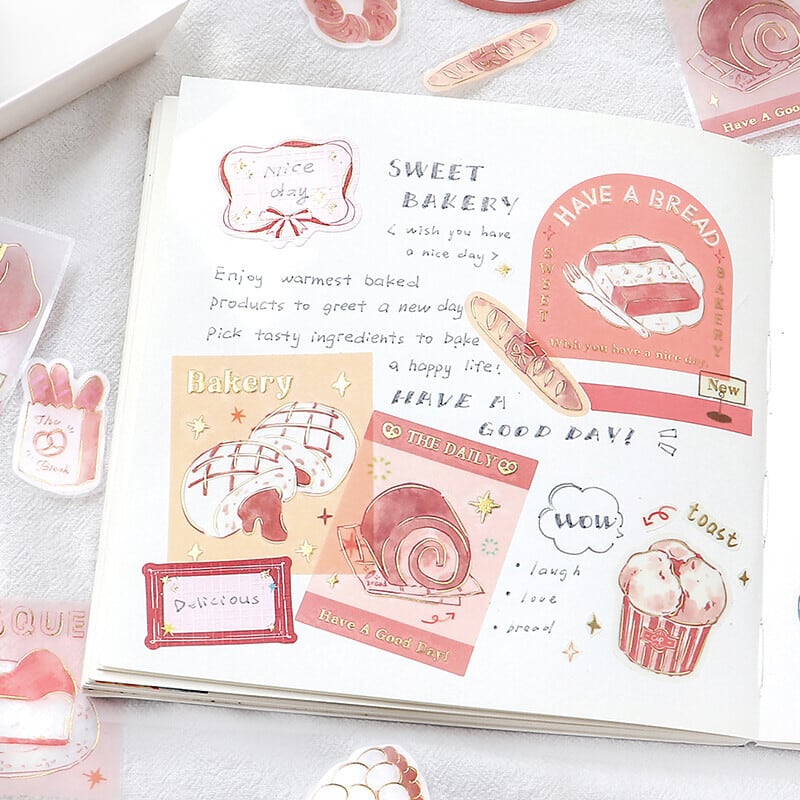 Have A Good
Nice
day
SWEET
BAKERY
< wish you have
a nice day >
HAVE A BREAD
SWEET
BAKERY
Wish you have a nice day.
New
Enjoy warmest baked
products to greet a new day
Pick tasty ingredients to bake
a happy life!
HAVE A
GOOD DAY!
Bakery
THE DAILY
bread
Have A Good Day!
Delicious
WOW
• laugh
• love
• bread
toast
The
Break
SQUE